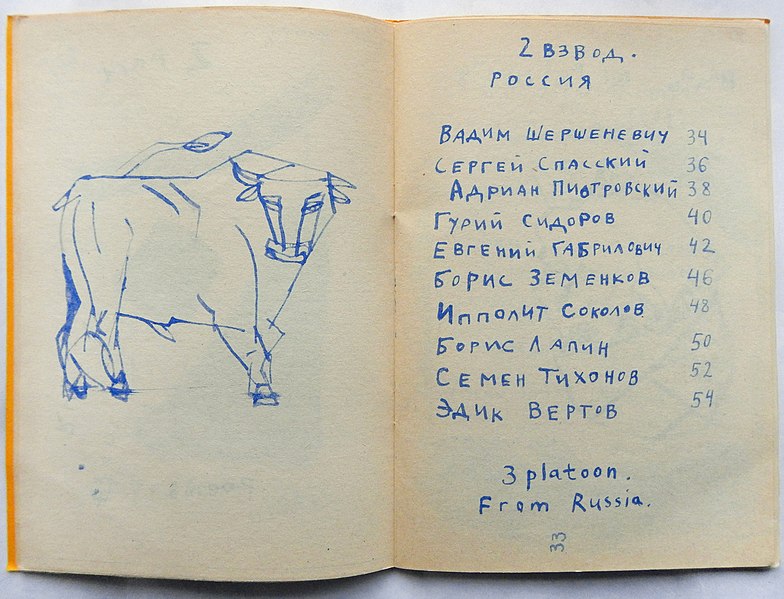 2 ВЗВОД.
РОССИЯ
ВАДИМ ШЕРШЕНЕВИЧ 34
СЕРГЕЙ СПАССКИЙ 36
АДРИАН ПИОТРОВСКИЙ 38
ГУРИЙ СИДОРОВ 40
ЕВГЕНИЙ ГАБРИЛОВИЧ 42
БОРИС ЗЕМЕНКОВ 46
ИППОЛИТ СОКОЛОВ 48
БОРИС ЛАПИН 50
СЕМЕН ТИХОНОВ 52
ЭДИК ВЕРТОВ 54
3 platoon.
From Russia.
33